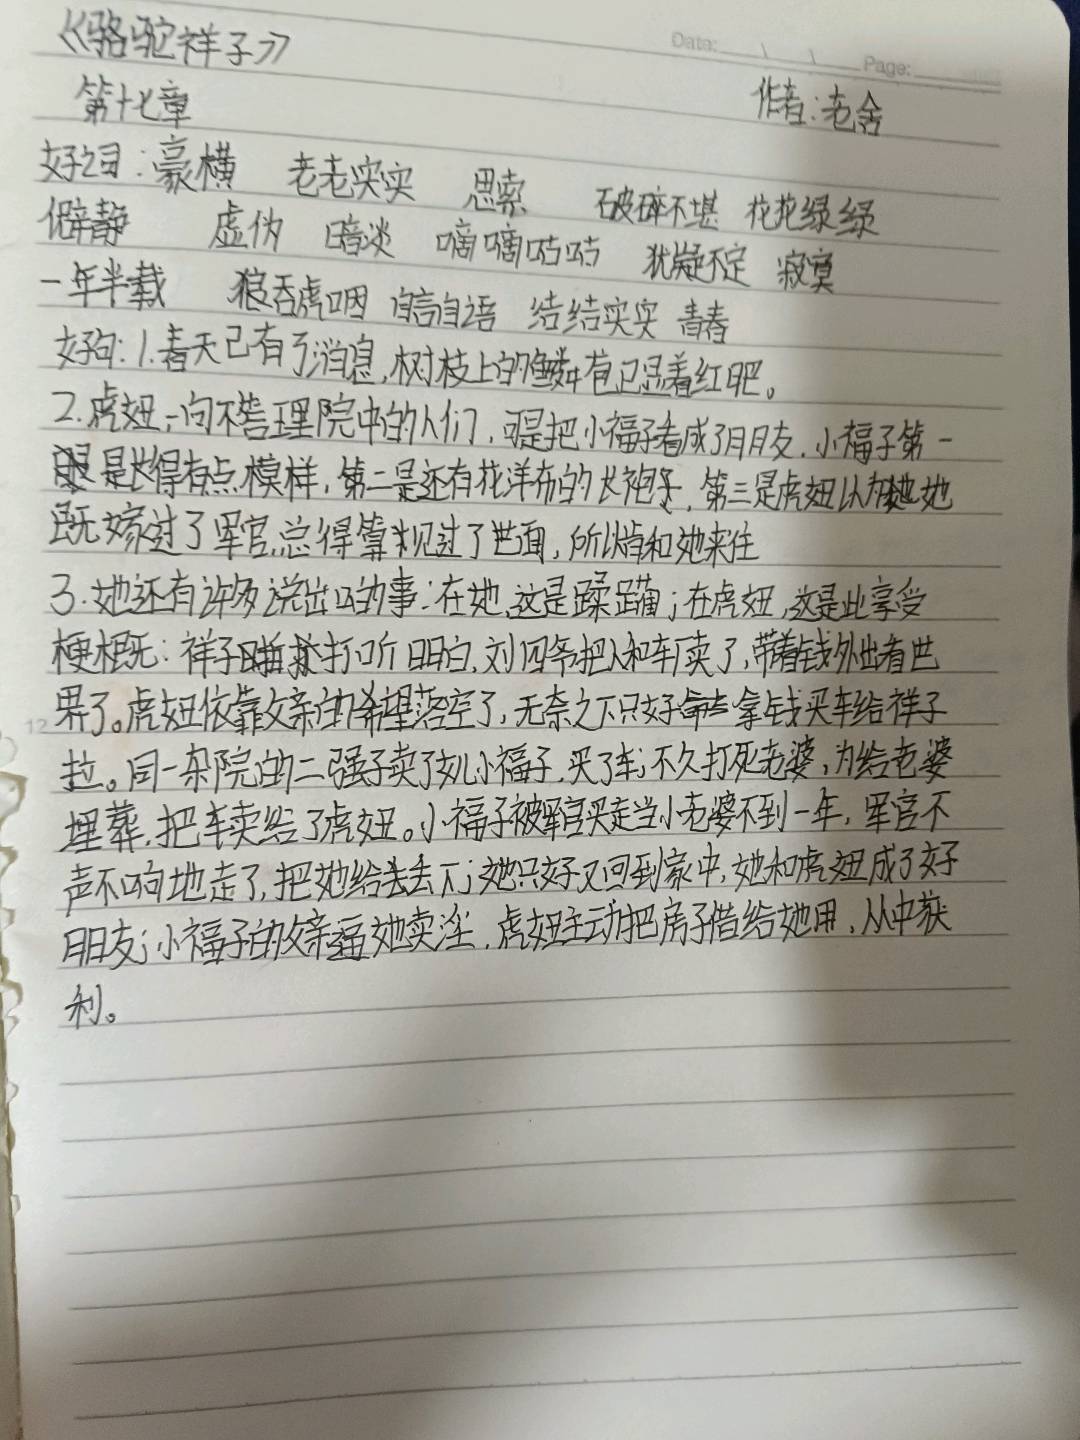 《骆驼祥子》
Date: \ \ Page:
第十七章 作者:老舍
好词:豪横 老老实实 思索 破碎不堪 花花绿绿
僻静 虚伪 暗淡 嘀嘀咕咕 犹疑不定 寂寞
一年半载 狼吞虎咽 自言自语 结结实实 青春
好句:1.春天已有了消息,树枝上的鳞苞已显着红肥。
2.虎妞一向不答理院中的人们,可是把小福子看成了朋友.小福子第一
是长得有点模样,第二是还有花洋布的长袍,第三是虎妞以为她
既嫁过了军官,总得算见过了世面,所以肯和她来往
3.她还有许多说不出口的事:在她,这是蹂躏;在虎妞,这是些享受
梗概:祥子打听明白,刘四爷把人和车厂卖了,带着钱外出看世
界了。虎妞依靠父亲的希望落空了,无奈之下只好拿钱买车给祥子
拉。同一杂院的二强子卖了女儿小福子,买了车;不久打死老婆,为给老婆
埋葬,把车卖给了虎妞。小福子被军官买走当小老婆不到一年,军官不
声不响地走了,把她给丢下;她只好又回到家中,她和虎妞成了好
朋友;小福子的父亲逼她卖淫,虎妞主动把房子借给她用,从中获
利。
12